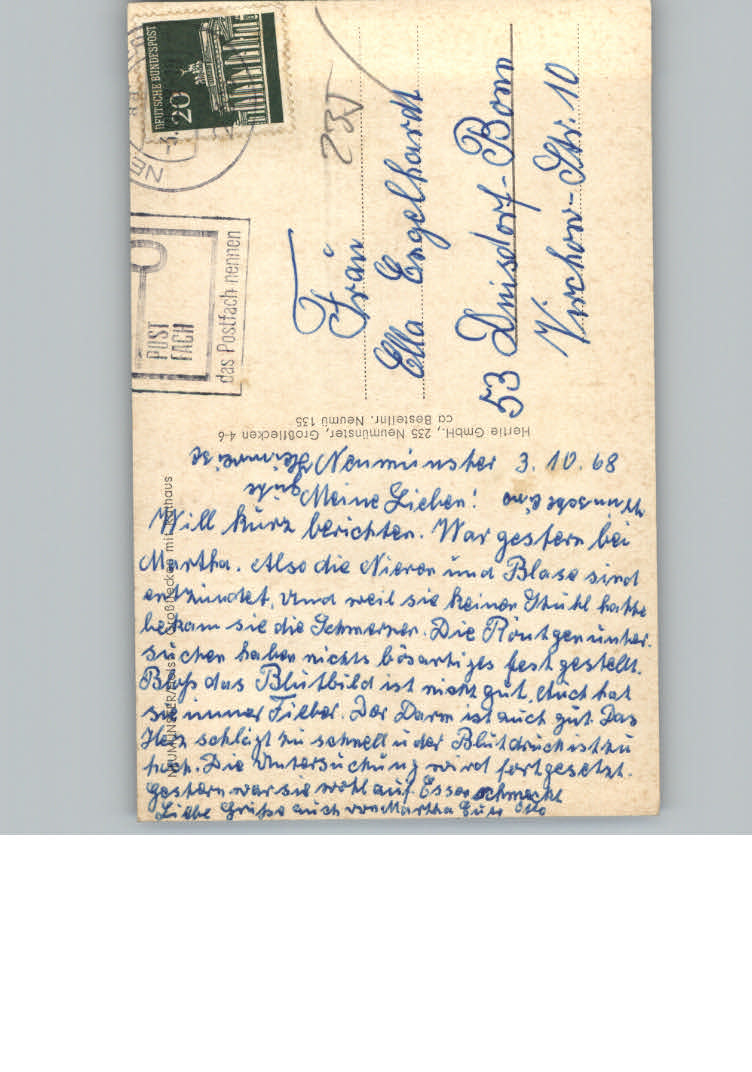 DEUTSCHE BUNDESPOST
20
NE
-3.
POST
FACH
das Postfach nennen
235
Frau
Ella Engelhardt
53 Duisdorf-Bonn
Virchow-Str. 10
Hertie GmbH., 235 Neumünster, Großflecken 4-6
ca Bestellnr. Neumü 135
NEUMÜNSTER/Holst. Großflecken mit Rathaus
Neumünster 3.10.68
Meine Lieben!
Will kurz berichten. War gestern bei
Martha. Also die Nieren und Blase sind
entzündet. Und weil sie keinen Stuhl hatte
bekam sie die Schmerzen. Die Röntgenunter-
suchen haben nichts bösartiges festgestellt.
Bloß das Blutbild ist nicht gut. Auch hat
sie immer Fieber. Der Darm ist auch gut. Das
Herz schlägt zu schnell u der Blutdruck ist zu
hoch. Die Untersuchung wird fortgesetzt.
Gestern war sie wohl auf. Essen schmeckt
Liebe Grüße auch von Martha Euer Otto